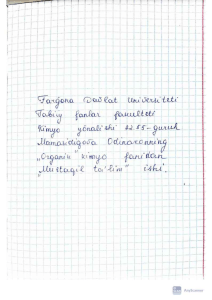 Farg'ona Davlat Universiteti
Tabiiy fanlar fakulteti
Kimyo yo'nalishi 22.55-guruh
Mamasidiqova Odinaxonning
"Organik kimyo fanidan
"Mustaqil ta'lim" ishi.